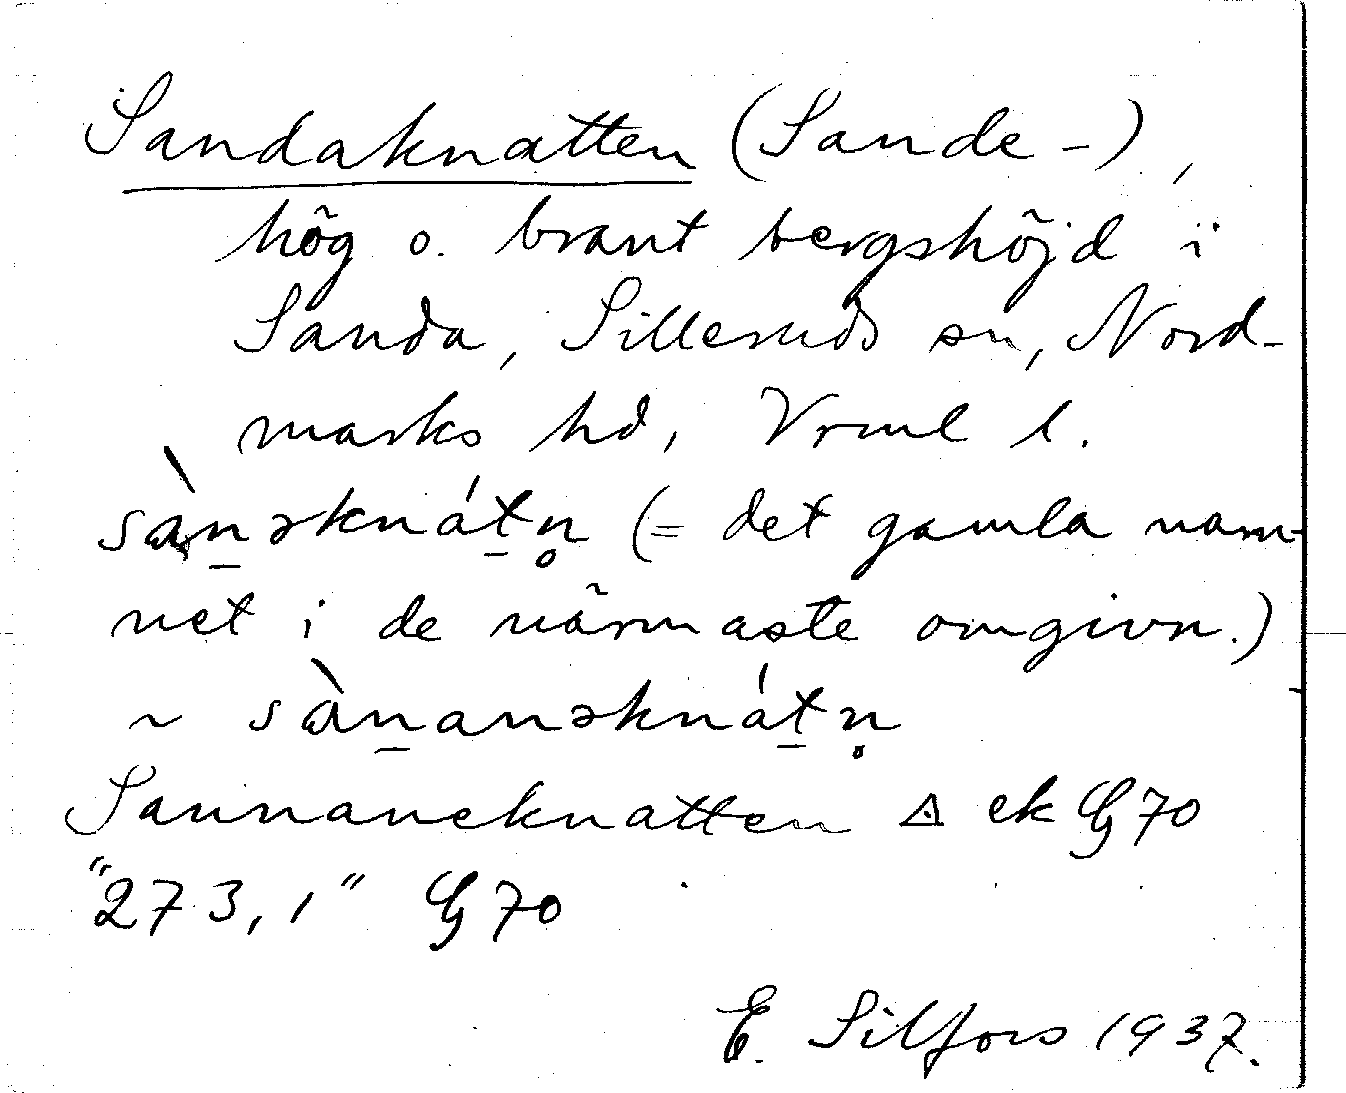 Sandaknatten (Sande-),
hög o. brant bergshöjd i
Sanda, Silleruds sn, Nord-
marks hd, Vrml l.
sàn̠əknát̠n̥ (= det gamla nam-
net i de närmaste omgivn.)
~ sàn̠anəknát̠n̥
Sannaneknatten △ ek G 70
"273,1" G 70
E. Silfors 1937.